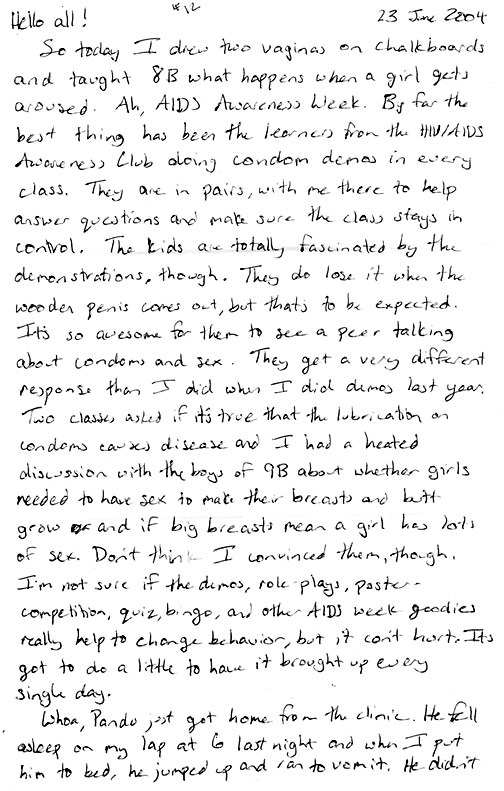 #12
Hello all! 23 June 2004
So today I drew two vaginas on chalkboards
and taught 8B what happens when a girl gets
aroused. Ah, AIDS Awareness Week. By far the
best thing has been the learners from the HIV/AIDS
Awareness Club doing condom demos in every
class. They are in pairs, with me there to help
answer questions and make sure the class stays in
control. The kids are totally fascinated by the
demonstrations, though. They do lose it when the
wooden penis comes out, but that's to be expected.
It's so awesome for them to see a peer talking
about condoms and sex. They get a very different
response than I did when I did demos last year.
Two classes asked if it's true that the lubrication on
condoms causes disease and I had a heated
discussion with the boys of 9B about whether girls
needed to have sex to make their breasts and butt
grow and if big breasts mean a girl has lots
of sex. Don't think I convinced them, though.
I'm not sure if the demos, role-plays, poster-
competition, quiz, bingo, and other AIDS week goodies
really help to change behavior, but it can't hurt. It's
got to do a little to have it brought up every
single day.
Whoa, Pando just got home from the clinic. He fell
asleep on my lap at 6 last night and when I put
him to bed, he jumped up and ran to vomit. He didn't